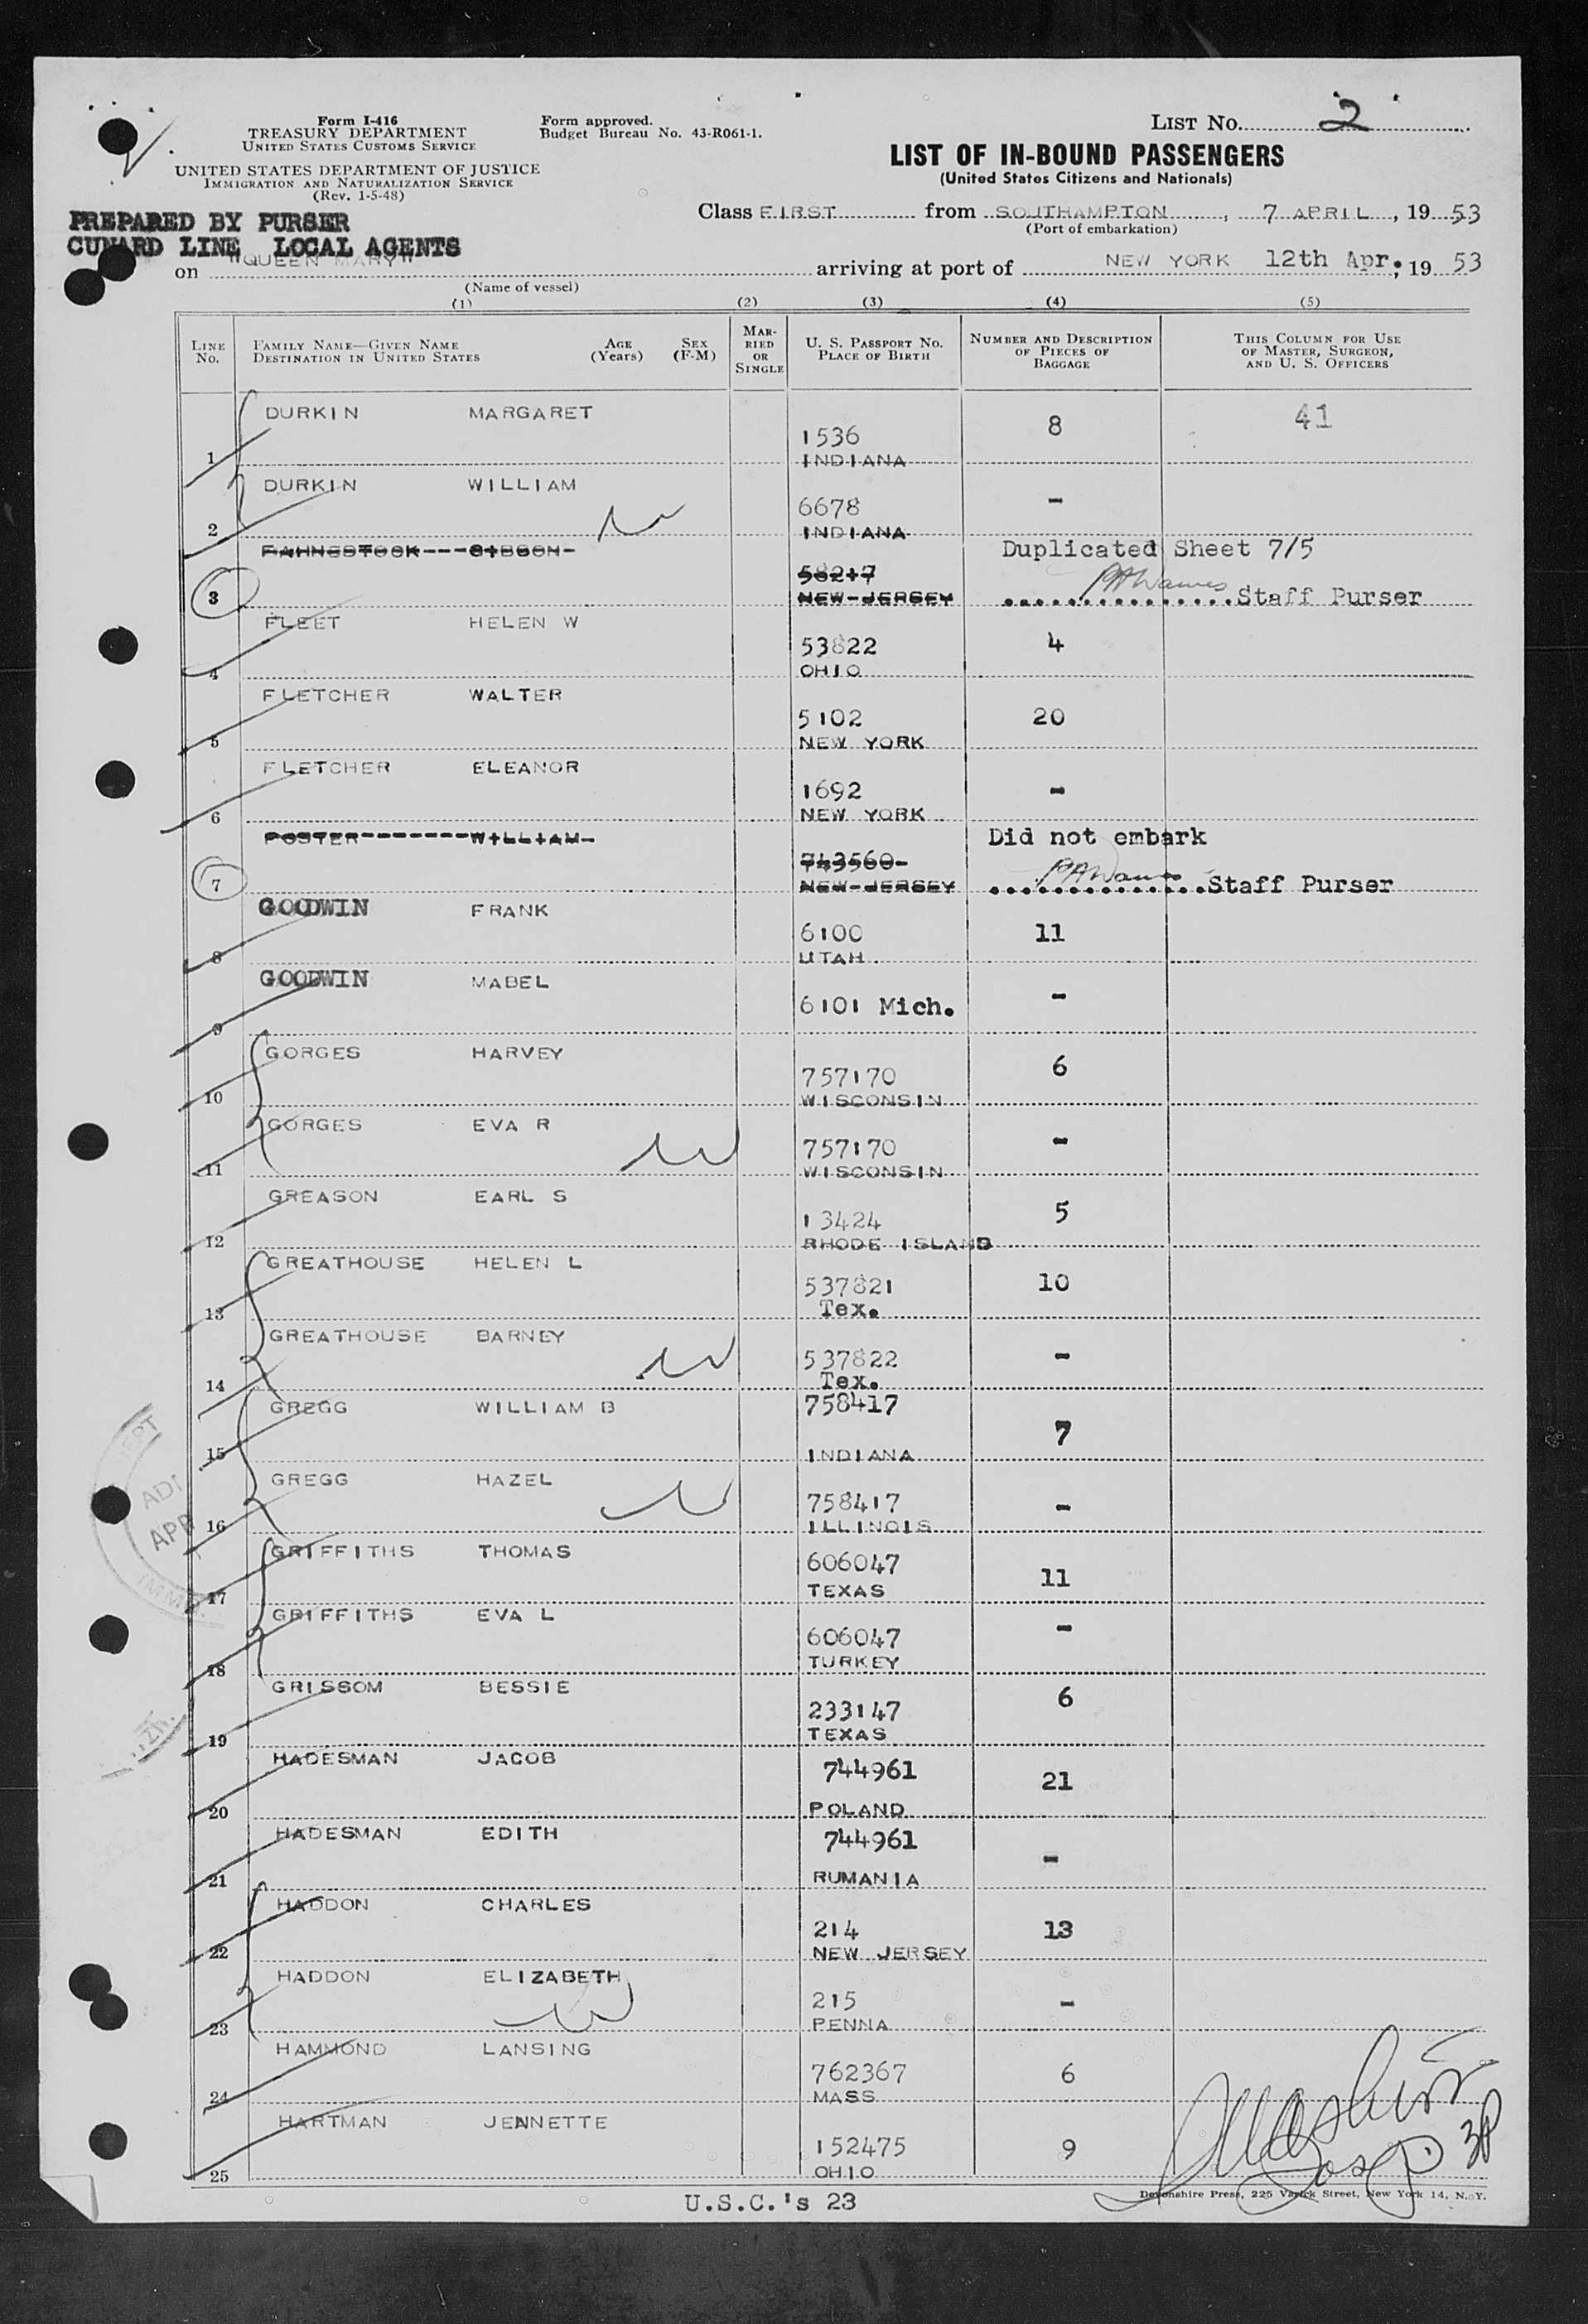 Form I-416
TREASURY DEPARTMENT
UNITED STATES CUSTOMS SERVICE
UNITED STATES DEPARTMENT OF JUSTICE
IMMIGRATION AND NATURALIZATION SERVICE
(Rev. 1-5-48)
Form approved.
Budget Bureau No. 43-R061-1.
LIST No. 2
LIST OF IN-BOUND PASSENGERS
(United States Citizens and Nationals)
PREPARED BY PURSER
CUNARD LINE LOCAL AGENTS
Class FIRST from SOUTHAMPTON, 7 APRIL, 19 53
(Port of embarkation)
on "QUEEN MARY" arriving at port of NEW YORK 12th Apr., 19 53
(Name of vessel)
(1) (2) (3) (4) (5)
LINE No.
FAMILY NAME—GIVEN NAME DESTINATION IN UNITED STATES
AGE (Years)
SEX (F-M)
MARRIED OR SINGLE
U. S. PASSPORT No. PLACE OF BIRTH
NUMBER AND DESCRIPTION OF PIECES OF BAGGAGE
THIS COLUMN FOR USE OF MASTER, SURGEON, AND U. S. OFFICERS
DURKIN MARGARET 8 41
1536
1 INDIANA
DURKIN WILLIAM -
6678
2 INDIANA
FAHNESTOCK---GIBSON- Duplicated Sheet 7/5
58217
3 NEW-JERSEY Staff Purser
FLEET HELEN W
53822 4
4 OHIO
FLETCHER WALTER
5102 20
5 NEW YORK
FLETCHER ELEANOR
1692 -
6 NEW YORK
FOSTER--------WILLIAM- Did not embark
743560-
7 NEW-JERSEY Staff Purser
GOODWIN FRANK
6100 11
8 UTAH
GOODWIN MABEL
6101 Mich. -
9
GORGES HARVEY 6
757170
10 WISCONSIN
GORGES EVA R -
757170
11 WISCONSIN
GREASON EARL S 5
13424
12 RHODE ISLAND
GREATHOUSE HELEN L
537821 10
13 Tex.
GREATHOUSE BARNEY
537822 -
14 Tex.
GREGG WILLIAM B 758417
7
15 INDIANA
GREGG HAZEL
758417 -
16 ILLINOIS
GRIFFITHS THOMAS
606047 11
17 TEXAS
GRIFFITHS EVA L
606047 -
18 TURKEY
GRISSOM BESSIE 6
233147
19 TEXAS
HADESMAN JACOB
744961 21
20 POLAND
HADESMAN EDITH
744961 -
21 RUMANIA
HADDON CHARLES
214 13
22 NEW JERSEY
HADDON ELIZABETH
215 -
23 PENNA
HAMMOND LANSING
762367 6
24 MASS
HARTMAN JENNETTE
152475 9
25 OHIO
U.S.C.'s 23
Devonshire Press, 225 Varick Street, New York 14, N.Y.